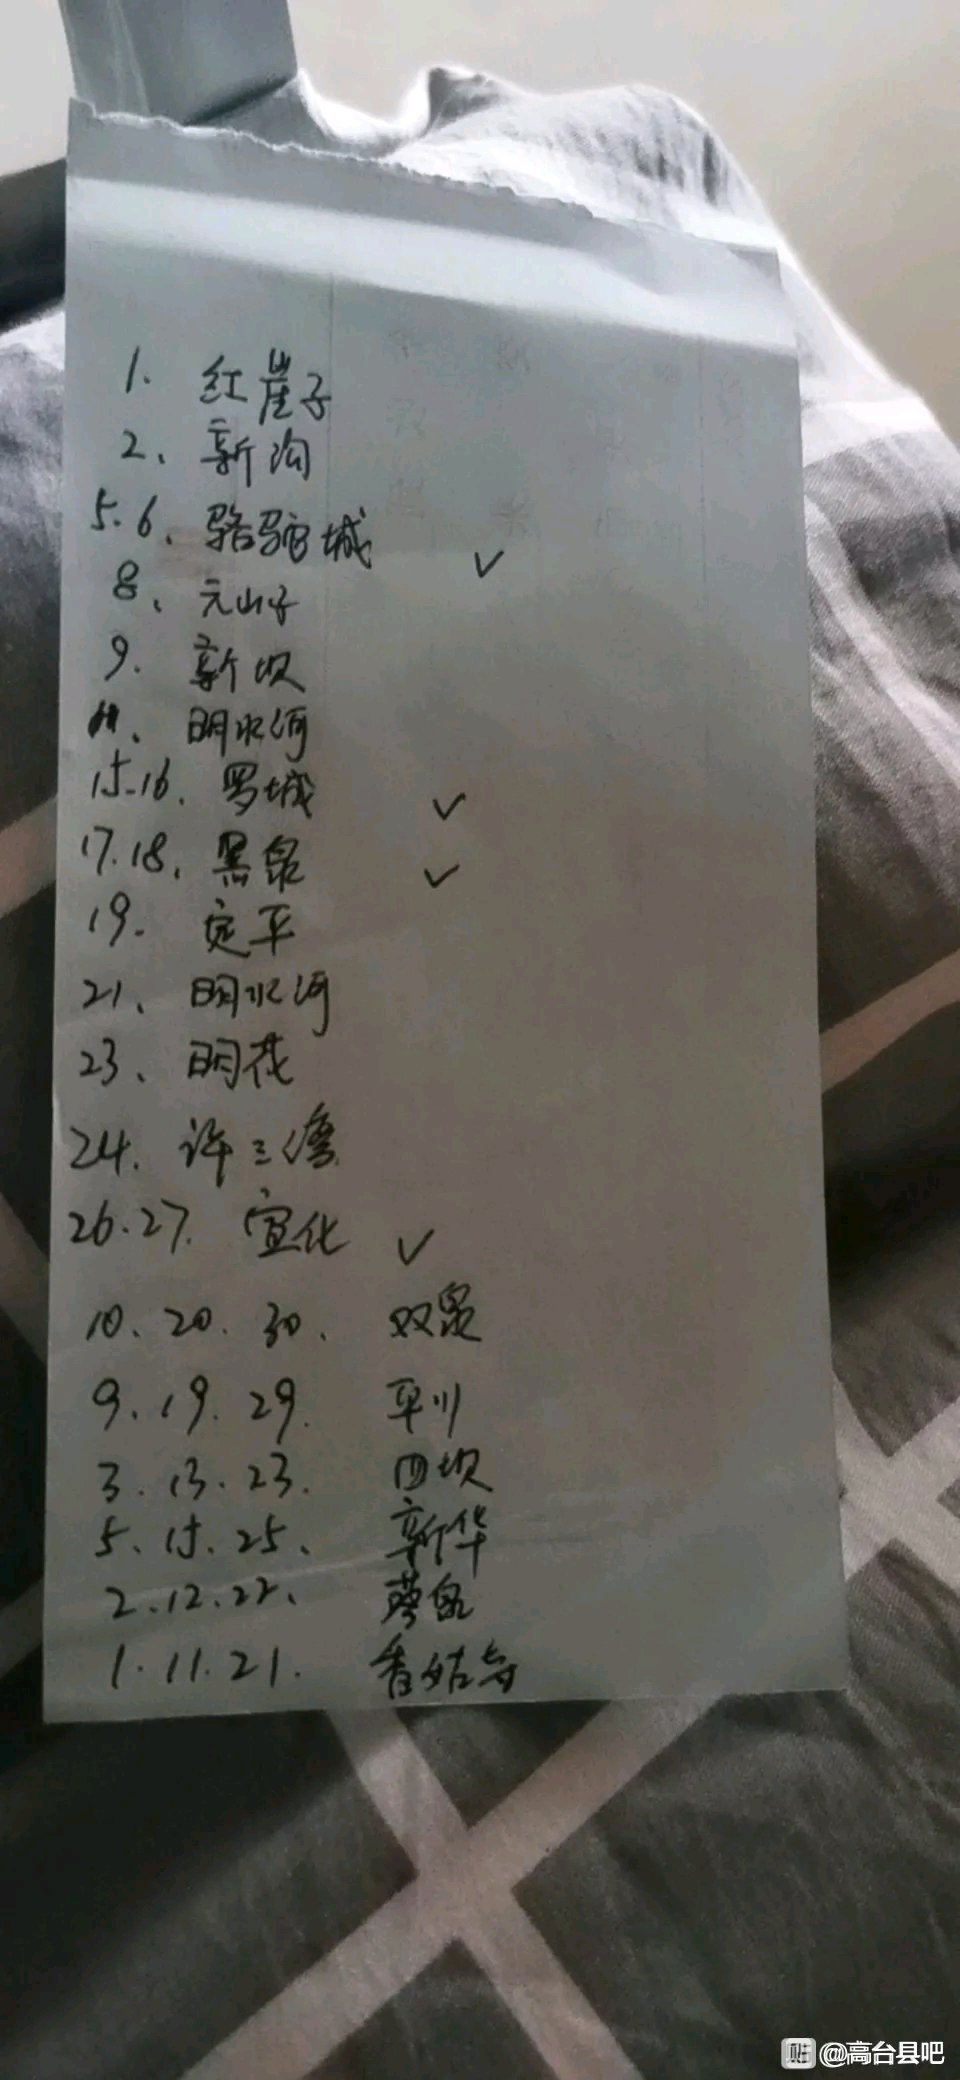 1. 红崖子
2、新沟
5.6、骆驼城 ✓
8、元山子
9. 新坝
11、明水河
15-16、罗城 ✓
17.18、黑泉 ✓
19. 定平
21、明水河
23、明花
24. 许三湾
26.27. 宣化 ✓
10、20. 30、双泉
9、19. 29. 平川
3. 13. 23. 四坝
5、15. 25、新华
2.12.22、蓼泉
1. 11. 21. 香姑寺
贴 @高台县吧